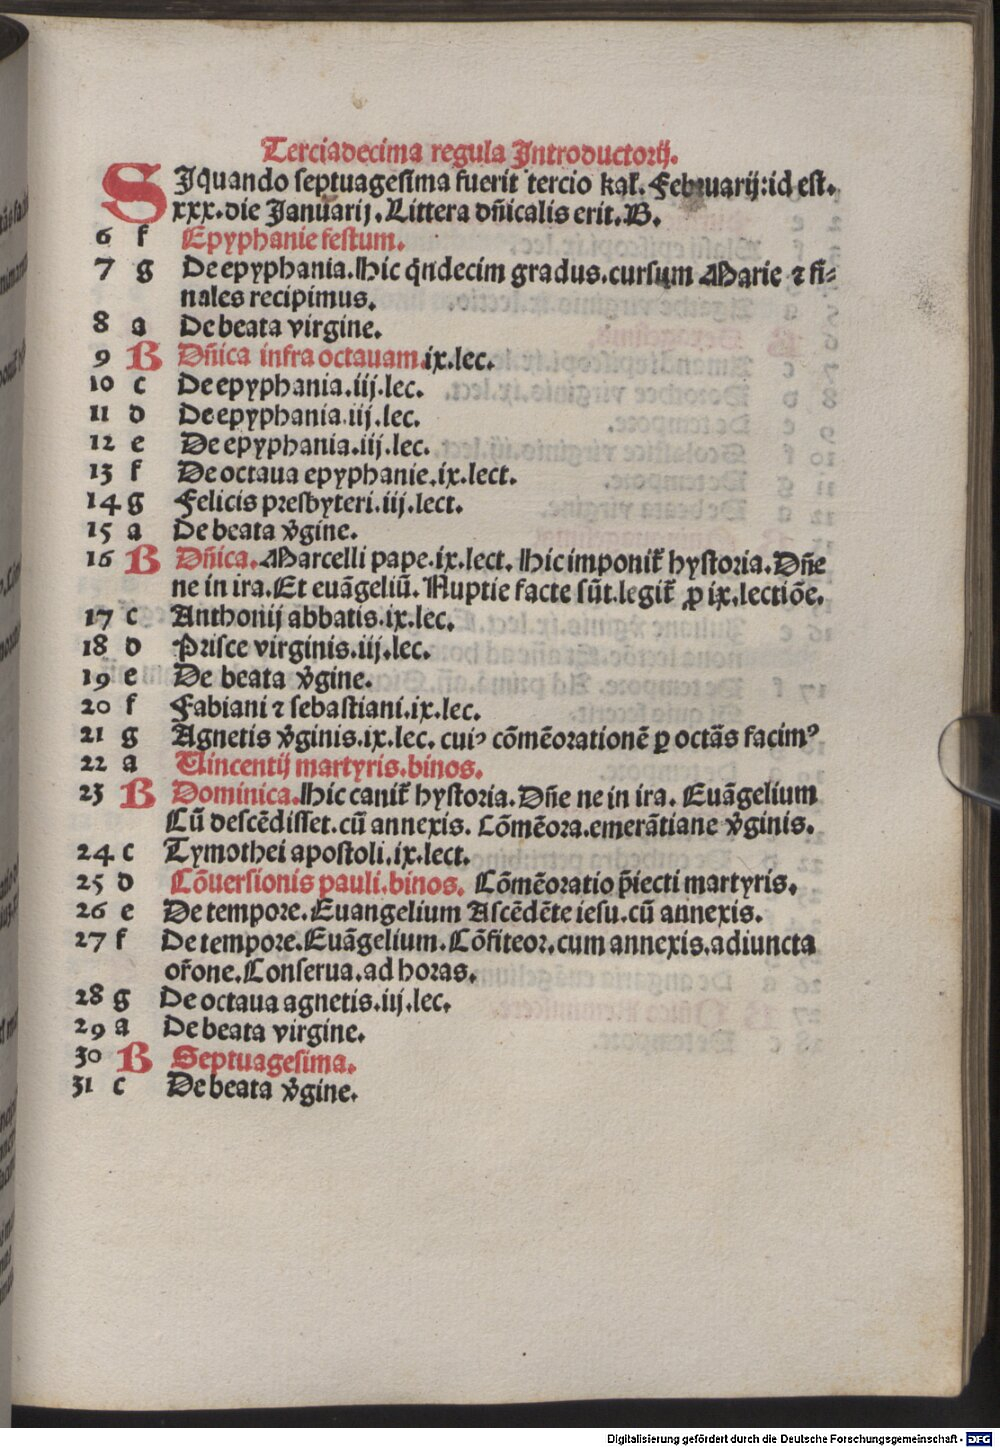 Terciadecima regula Introductorij.
SIquando septuagesima fuerit tercio kal̄. Februarij: id est.
xxx. die Januarij. Littera dñicalis erit. B.
6 f Epyphanie festum.
7 g De epyphania. Hic q̃ndecim gradus. cursum Marie ⁊ fi⸗
nales recipimus.
8 a De beata virgine.
9 B Dñica infra octauam. ix. lec.
10 c De epyphania. iij. lec.
11 d De epyphania. iij. lec.
12 e De epyphania. iij. lec.
13 f De octaua epyphanie. ix. lect.
14 g Felicis presbyteri. iij. lect.
15 a De beata v̾gine.
16 B Dñica. Marcelli pape. ix. lect. Hic imponit̃ hystoria. Dñe
ne in ira. Et euãgeliũ. Nuptie facte sũt. legit̃ ꝓ ix. lectiõe.
17 c Anthonij abbatis. ix. lec.
18 d Prisce virginis. iij. lec.
19 e De beata v̾gine.
20 f Fabiani ⁊ sebastiani. ix. lec.
21 g Agnetis v̾ginis. ix. lec. cuiꝰ cõmẽorationẽ ꝑ octãs facimꝰ
22 a Vincentij martyris. binos.
23 B Dominica. Hic canit̃ hystoria. Dñe ne in ira. Euãgelium
Cũ descẽdisset. cũ annexis. Cõmẽora. emerãtiane v̾ginis.
24 c Tymothei apostoli. ix. lect.
25 d Cõuersionis pauli. binos. Cõmẽoratio p̃iecti martyris.
26 e De tempore. Euangelium Ascẽdẽte iesu. cũ annexis.
27 f De tempore. Euãgelium. Cõfiteor. cum annexis. adiuncta
or̃one. Conserua. ad horas.
28 g De octaua agnetis. iij. lec.
29 a De beata virgine.
30 B Septuagesima.
31 c De beata v̾gine.
Digitalisierung gefördert durch die Deutsche Forschungsgemeinschaft - DFG